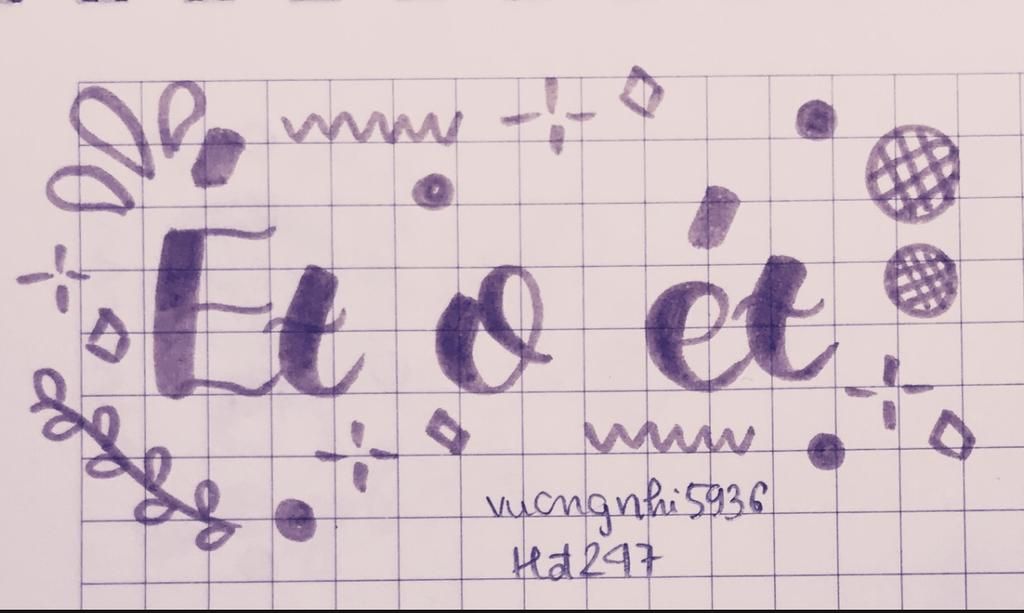 Ét o ét
vuongnhi5936
Hd247